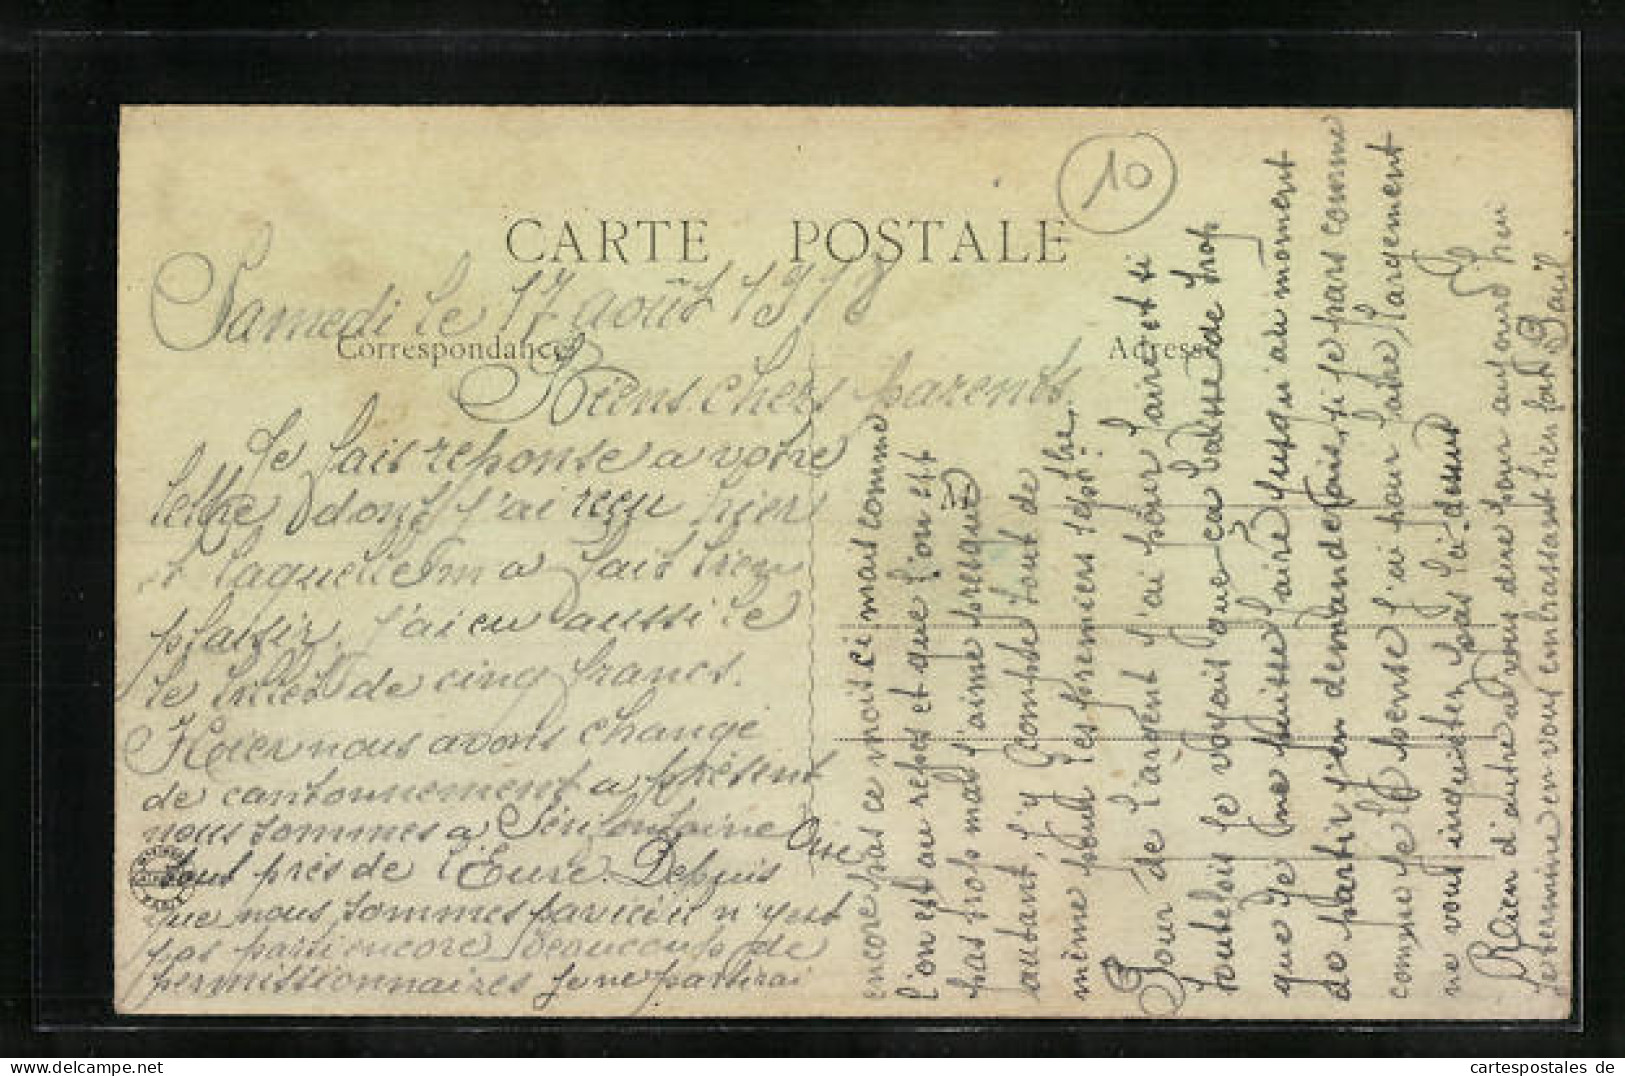 10
CARTE POSTALE
Samedi le 17 août 1918
Correspondance
Adresse
Biens chers parents.
Je fais reponse a votre
lettre dont j'ai reçu hier
et laquelle m'a fait bien
plaisir. j'ai eu aussi le
le billet de cinq francs.
Hier nous avons changé
de cantonnement a présent
nous sommes a Sérifontaine Oise
tout près de l'Eure. Depuis
que nous sommes par ici il n'y est
pas parti encore beaucoup de
permissionnaires je ne partirai
encore pas ce mois ci mais comme
l'on est au repos et que l'on est
pas trop mal j'aime presque
autant, j'y compte tout de
même pour les premiers septbre.
Pour de l'argent j'ai pour faire et si
toutefois je voyais que ça baisse de trop
que je ne puisse faire jusqu'au moment
de partir j'en demanderais, si je pars comme
comme je le pense j'ai pour faire largement
ne vous inquiéter pas la dessus
Rien d'autre a vous dire pour aujourd'hui
je termine en vous embrassant bien fort Basil.
cartespostales de